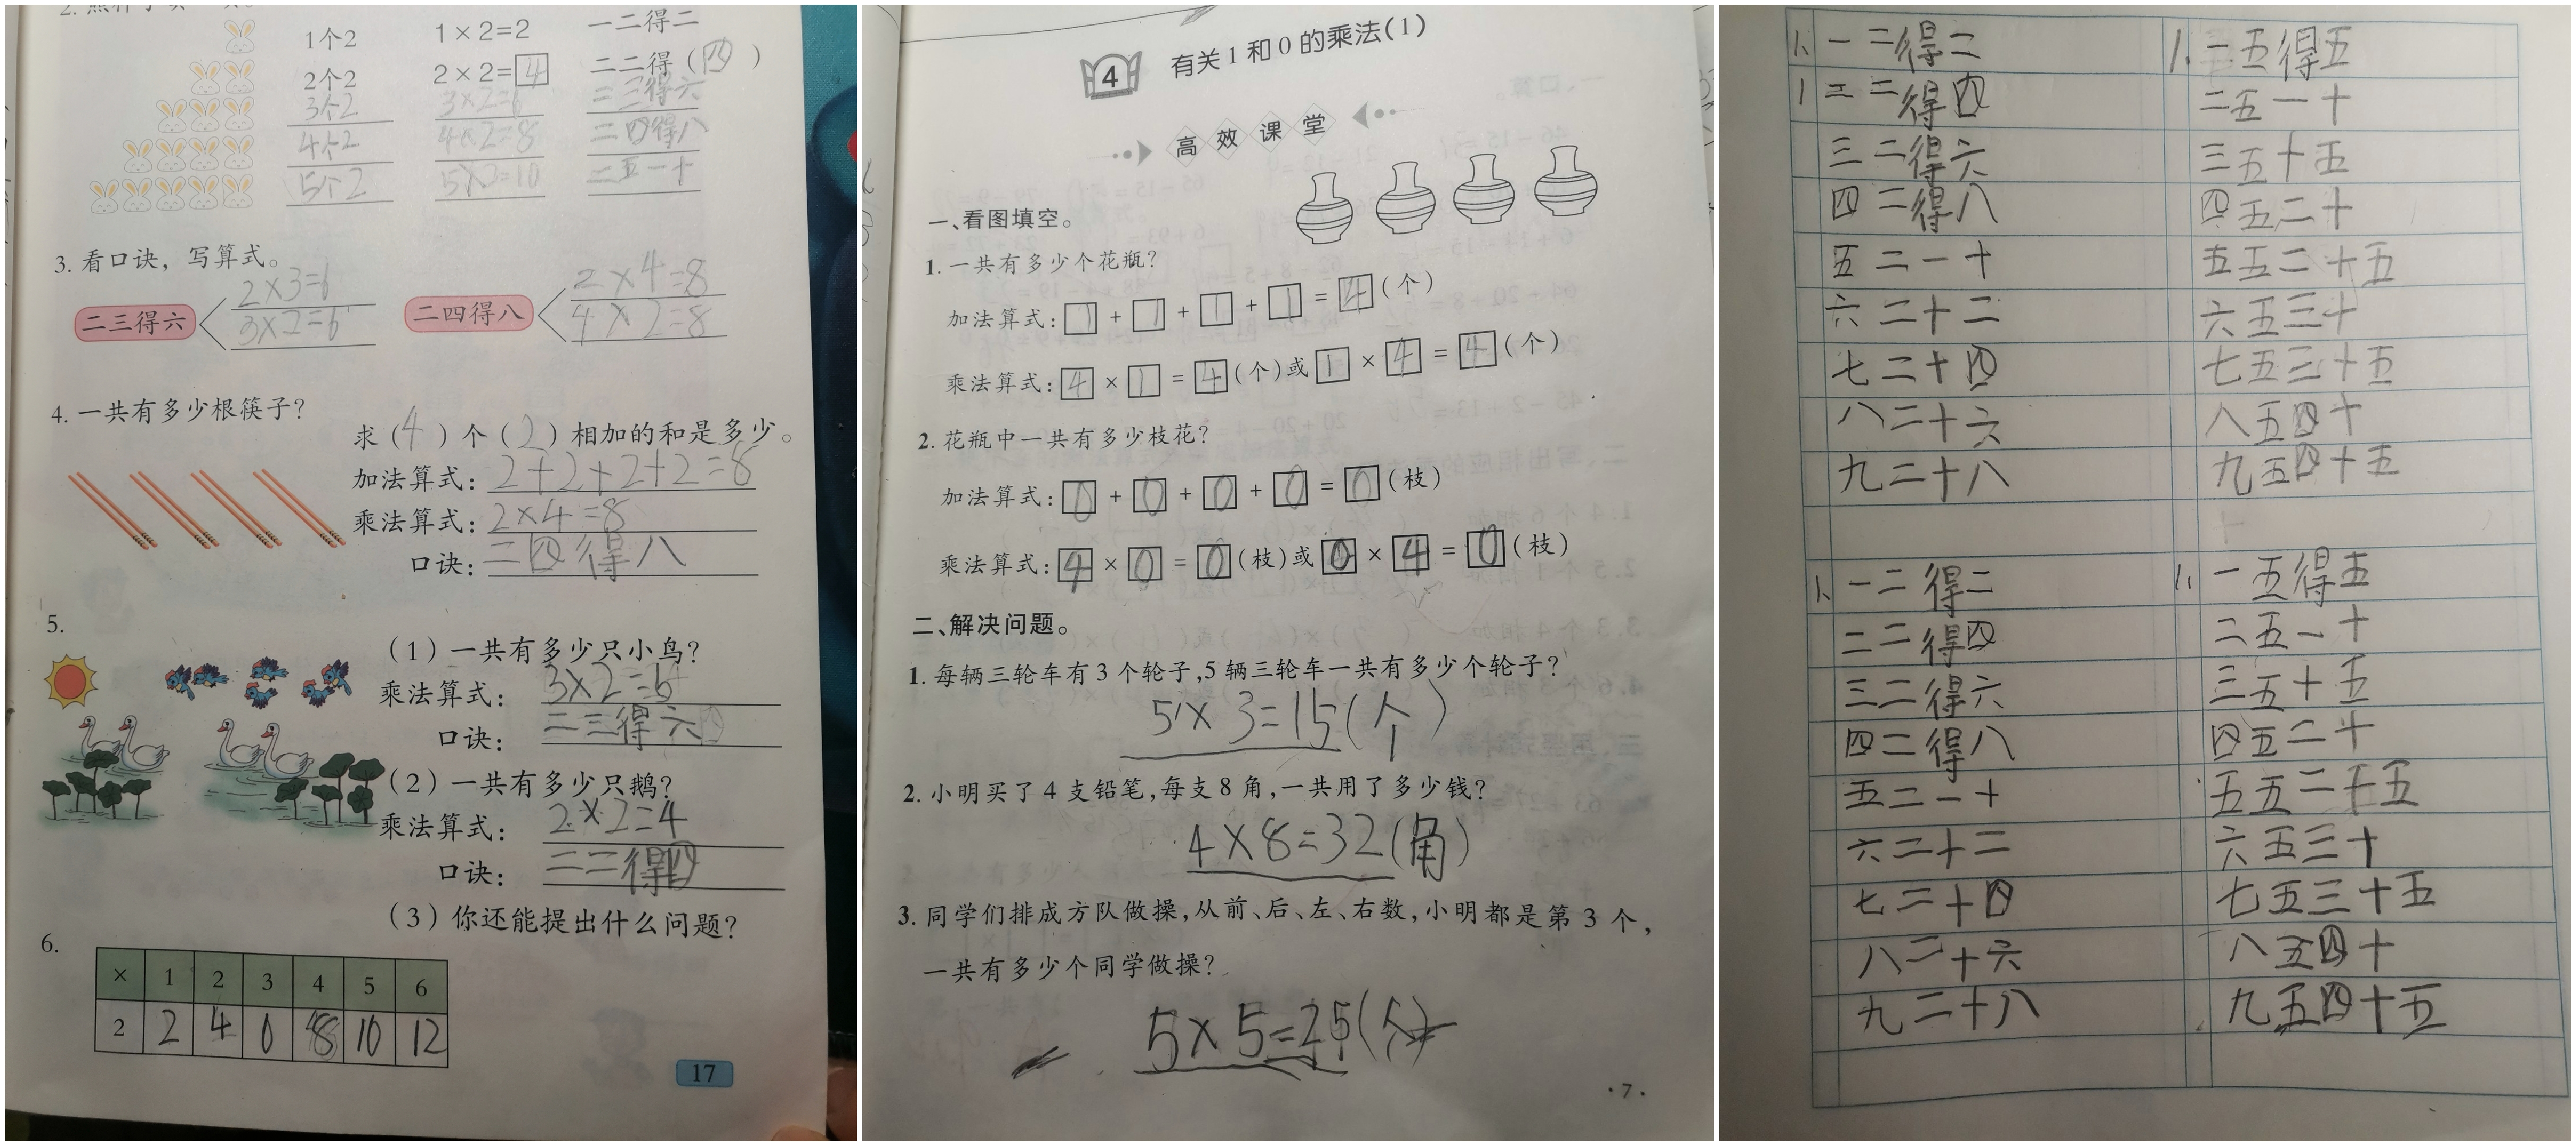 1个2 1×2=2 一二得二
2个2 2×2=4 二二得(四)
3个2 3×2=6 二三得六
4个2 4×2=8 二四得八
5个2 5×2=10 二五一十
3. 看口诀，写算式。
二三得六 2×3=6 二四得八 2×4=8
3×2=6 4×2=8
4. 一共有多少根筷子？
求(4)个(2)相加的和是多少。
加法算式：2+2+2+2=8
乘法算式：2×4=8
口诀：二四得八
5.
（1）一共有多少只小鸟？
乘法算式：3×2=6
口诀：二三得六
（2）一共有多少只鹅？
乘法算式：2×2=4
口诀：二二得四
（3）你还能提出什么问题？
6.
× 1 2 3 4 5 6
2 2 4 6 8 10 12
17
4 有关1和0的乘法(1)
高效课堂
一、看图填空。
1. 一共有多少个花瓶？
加法算式：1+1+1+1=4(个)
乘法算式：4×1=4(个)或1×4=4(个)
2. 花瓶中一共有多少枝花？
加法算式：0+0+0+0=0(枝)
乘法算式：4×0=0(枝)或0×4=0(枝)
二、解决问题。
1. 每辆三轮车有3个轮子,5辆三轮车一共有多少个轮子？
5×3=15(个)
2. 小明买了4支铅笔,每支8角,一共用了多少钱？
4×8=32(角)
3. 同学们排成方队做操,从前、后、左、右数,小明都是第3个,
一共有多少个同学做操？
5×5=25(个)
·7·
1. 一二得二
1 二二得四
三二得六
四二得八
五二一十
六二十二
七二十四
八二十六
九二十八
1. 一二得二
二二得四
三二得六
四二得八
五二一十
六二十二
七二十四
八二十六
九二十八
1. 一五得五
二五一十
三五十五
四五二十
五五二十五
六五三十
七五三十五
八五四十
九五四十五
1. 一五得五
二五一十
三五十五
四五二十
五五二十五
六五三十
七五三十五
八五四十
九五四十五